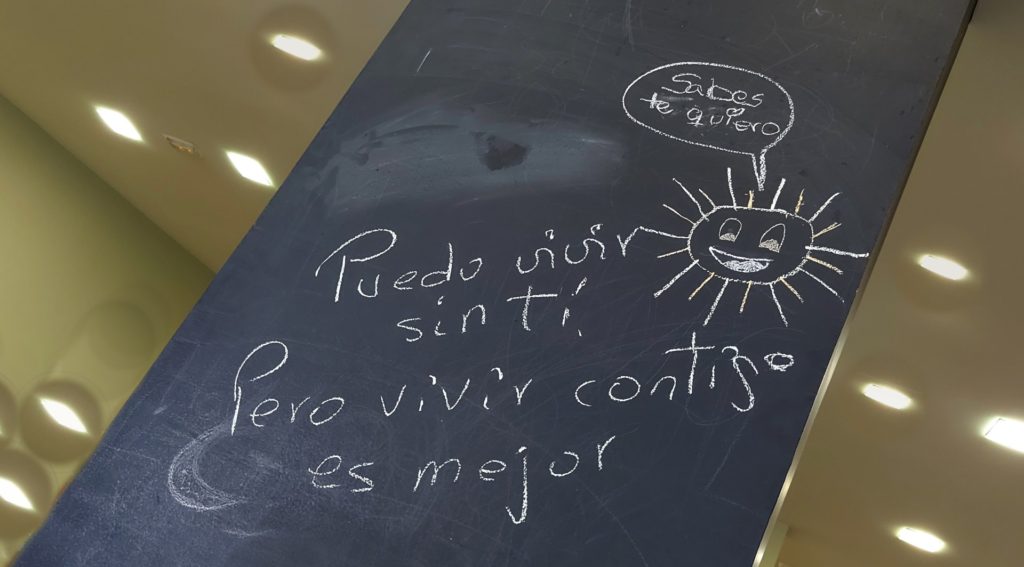 Sabes
te quiero
Puedo vivir
sin tí.
Pero vivir contigo
es mejor